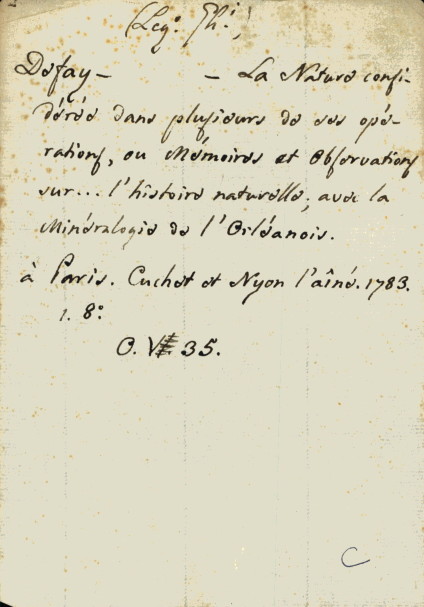 Defay — — La Nature consi-
dérée dans plusieurs de ses opé-
rations, ou Mémoires et Observations
sur... l'histoire naturelle, avec la
Minéralogie de l'Orléanois.
à Paris. Cuchet et Nyon l'aîné. 1783.
1. 8°.
O. 35.
C